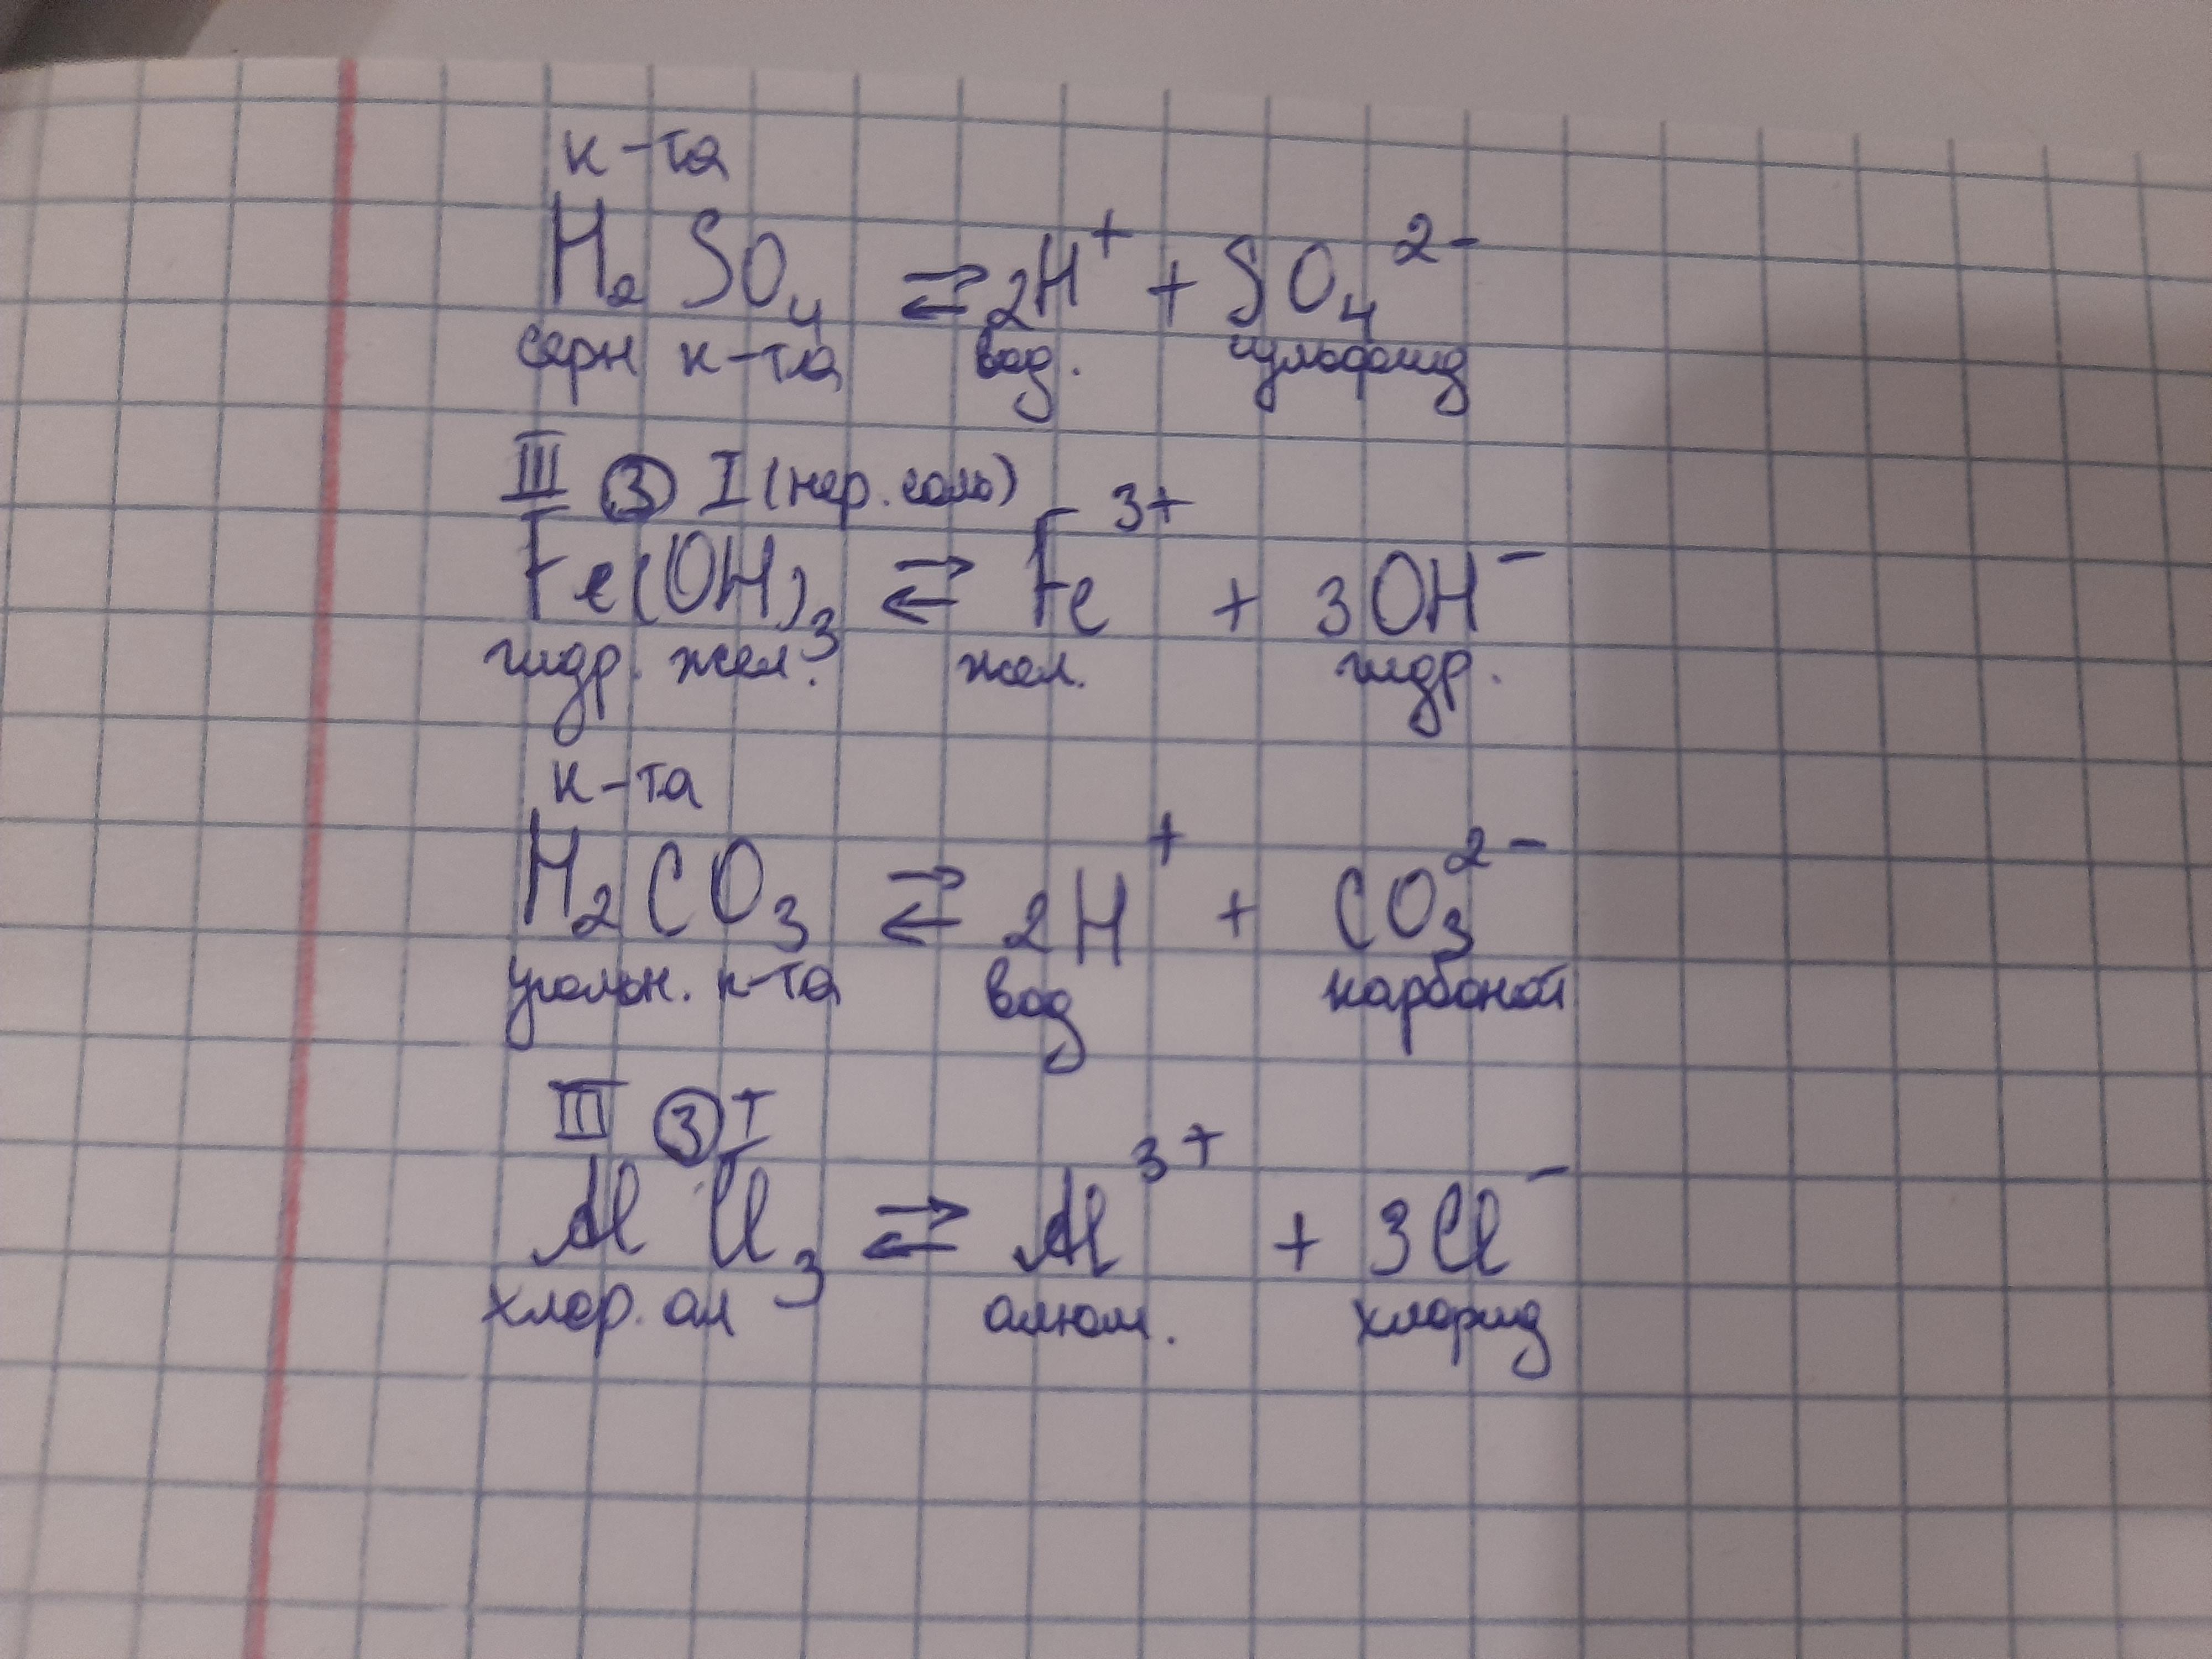 к-та
H₂SO₄ ⇄ 2H⁺ + SO₄²⁻
серн к-та вод. сульфид
III ③ I (нер. соль)
Fe(OH)₃ ⇄ Fe³⁺ + 3OH⁻
гидр. жел. жел. гидр.
к-та
H₂CO₃ ⇄ 2H⁺ + CO₃²⁻
угольн. к-та вод карбонат
III ③ I
AlCl₃ ⇄ Al³⁺ + 3Cl⁻
хлор. ал алюм. хлорид